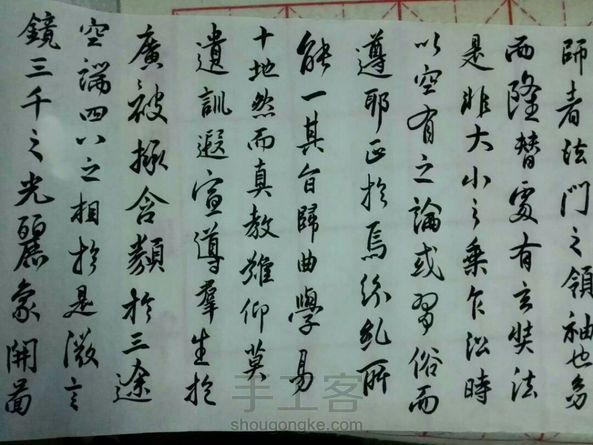 鏡三千之光麗象開圖
空端四八之相於是微言
廣被拯含類於三途
遺訓遐宣導羣生於
十地然而真教難仰莫
能一其旨歸曲學易
遵耶正於焉紛糺所
以空有之論或習俗而
是非大小之乘乍沿時
而隆替有玄奘法
師者法門之領袖也幼
手工客
shougongke.com